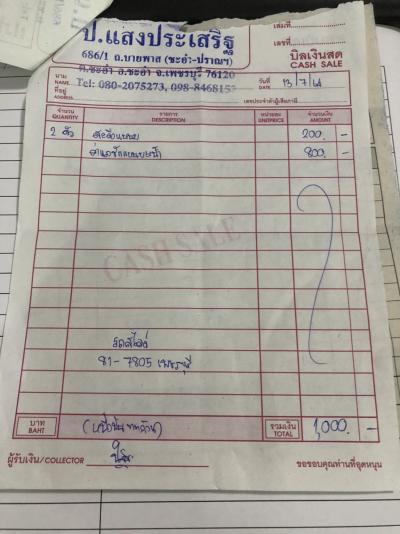 ป.แสงประเสริฐ
686/1 ถ.บายพาส (ชะอำ-ปราณฯ)
ต.ชะอำ อ.ชะอำ จ.เพชรบุรี 76120
Tel: 080-2075273, 098-8468153
เล่มที่
เลขที่
บิลเงินสด
CASH SALE
นาม
NAME
ที่อยู่
ADDRESS
วันที่ 13/7/64
DATE
เลขประจำตัวผู้เสียภาษี
จำนวน รายการ หน่วยละ จำนวนเงิน
QUANTITY DESCRIPTION UNITPRICE AMOUNT
2 ตัว 200. -
800. -
CASH SALE
81-7805 เพชรบุรี
บาท (หนึ่งพันบาทถ้วน) รวมเงิน 1,000. -
BAHT TOTAL
ผู้รับเงิน/COLLECTOR
ขอขอบคุณท่านที่อุดหนุน